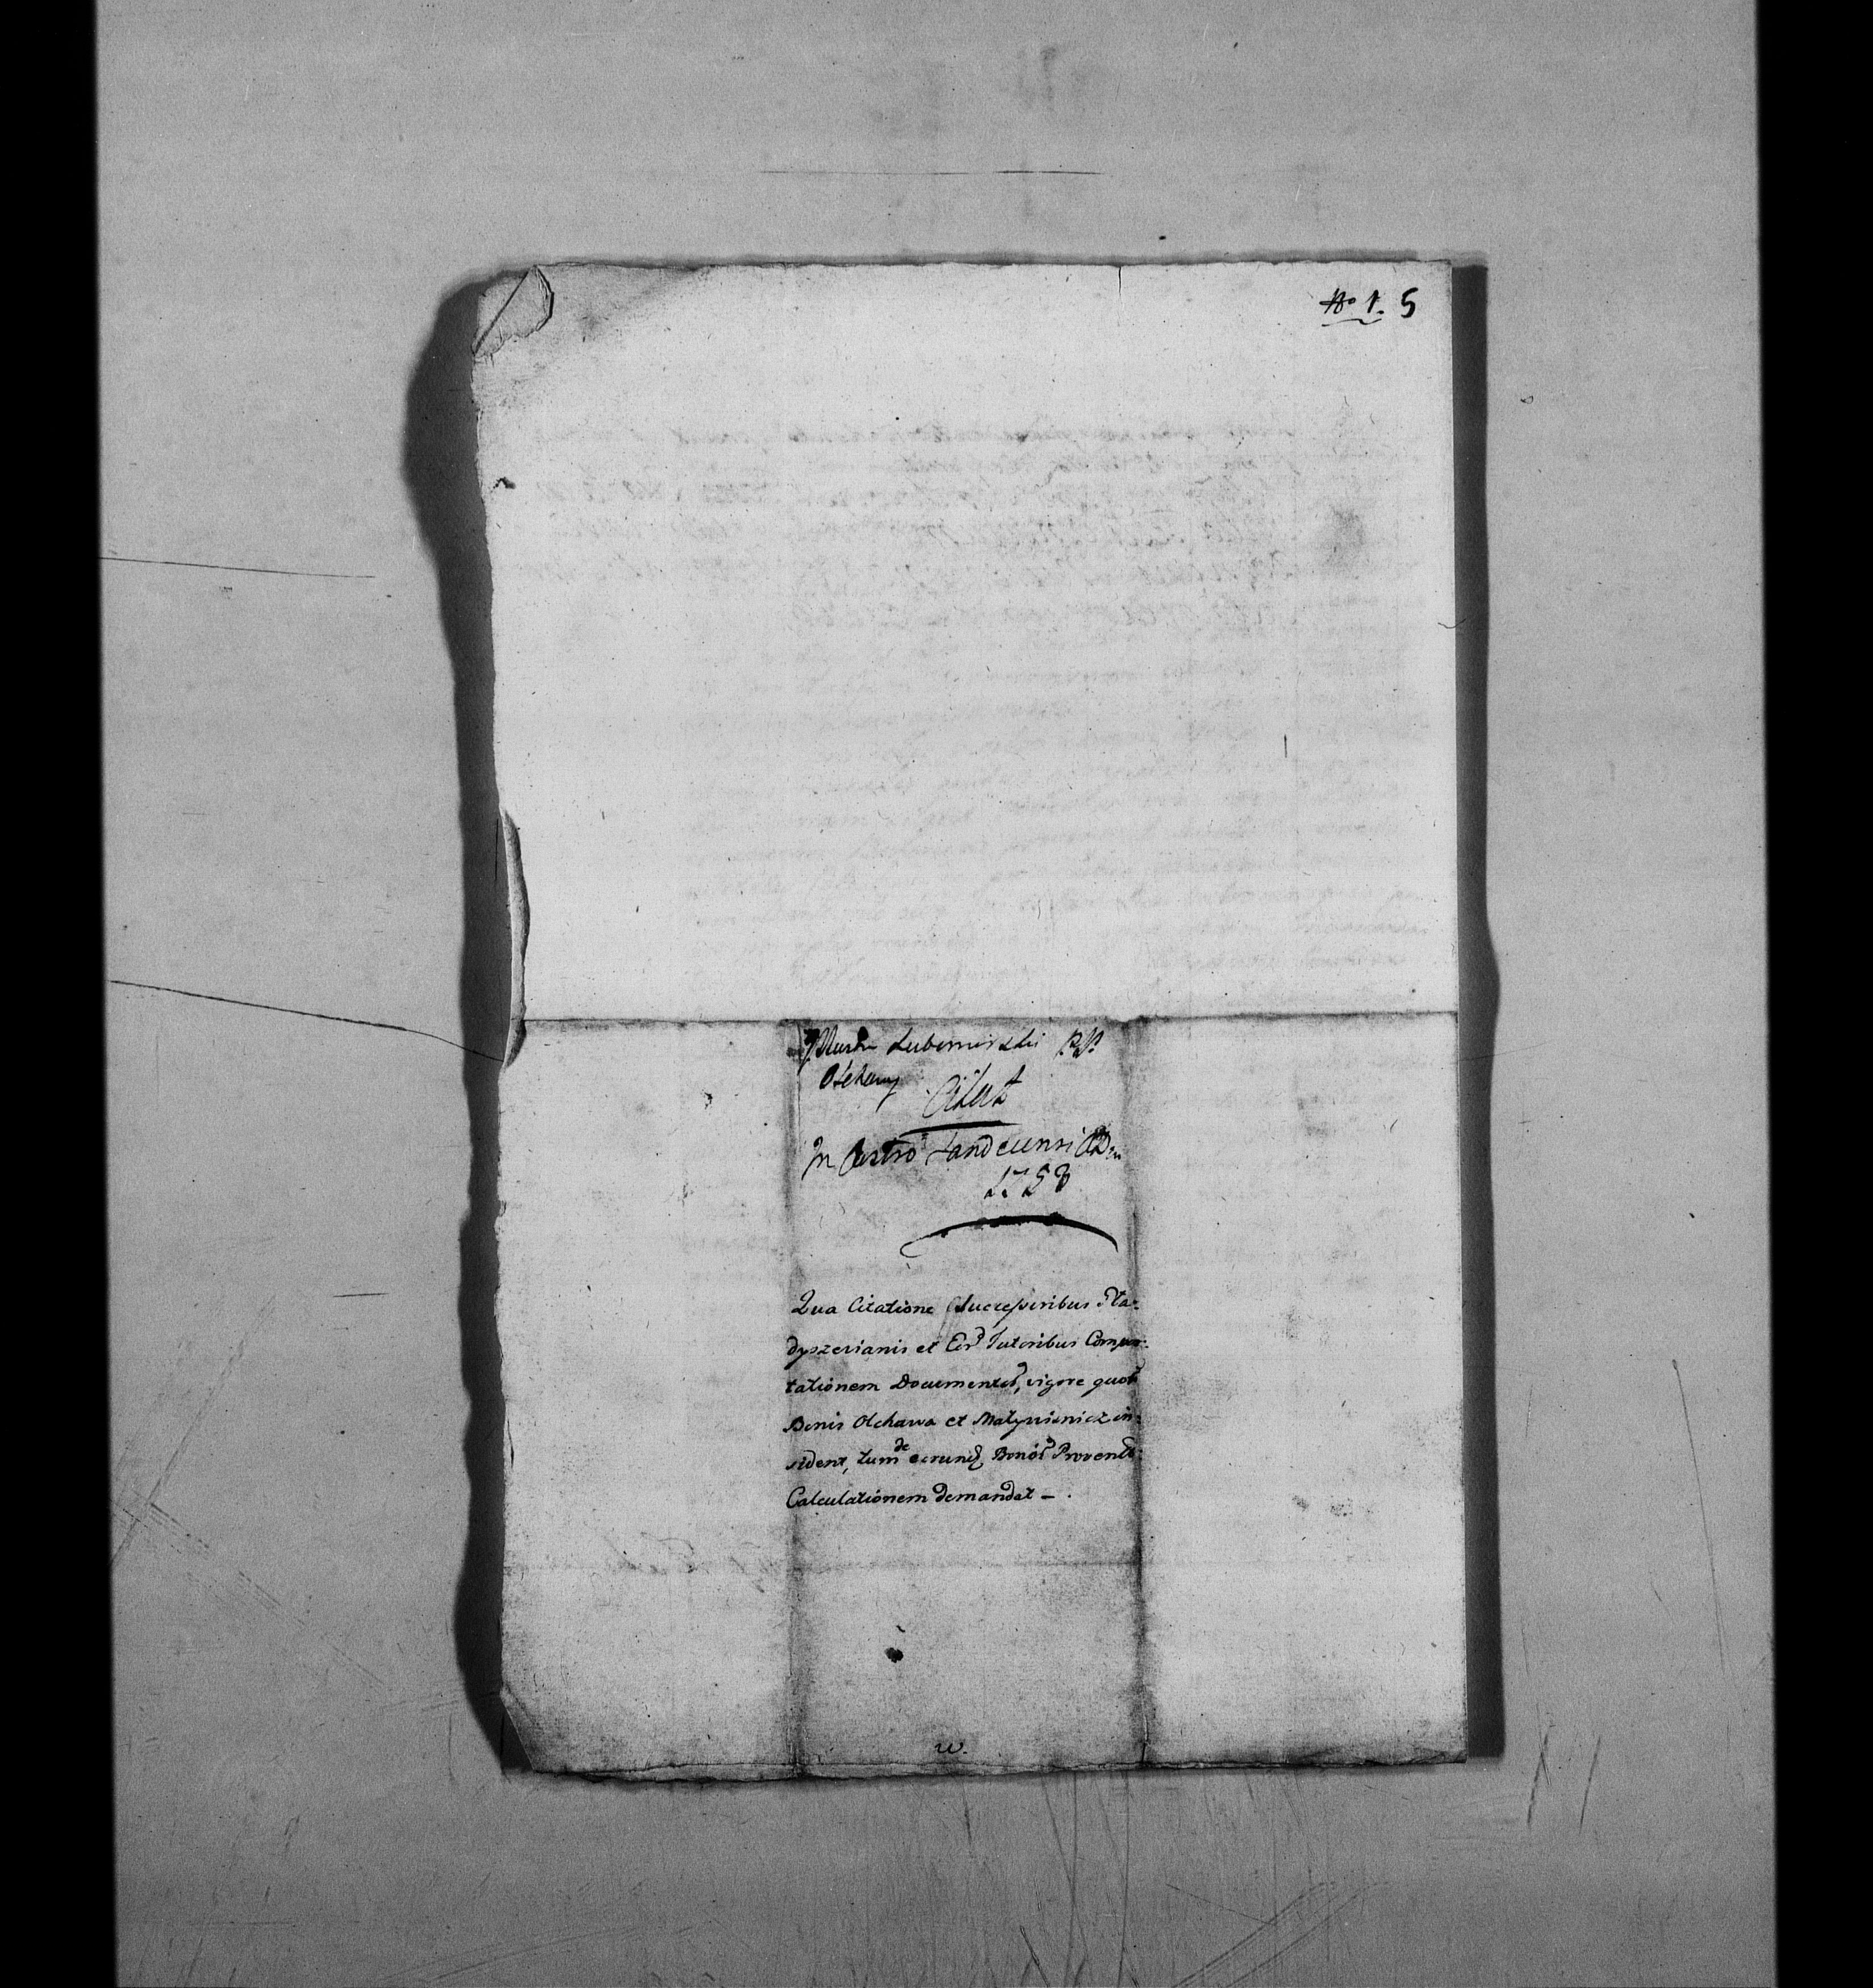 No 1. 5
Illustr Lubomirski
Olchawy
Citat
In Castro Sandecensi ADni
1758
Qua Citatione Succesoribus Sta-
dyszerianis et Eor Tutoribus Compor-
tationem Documentor, vigore quor
Bonis Olchawa et Matysienicz in-
sident, tum de eorund Bonor Provent
Calculationem demandat –
w.